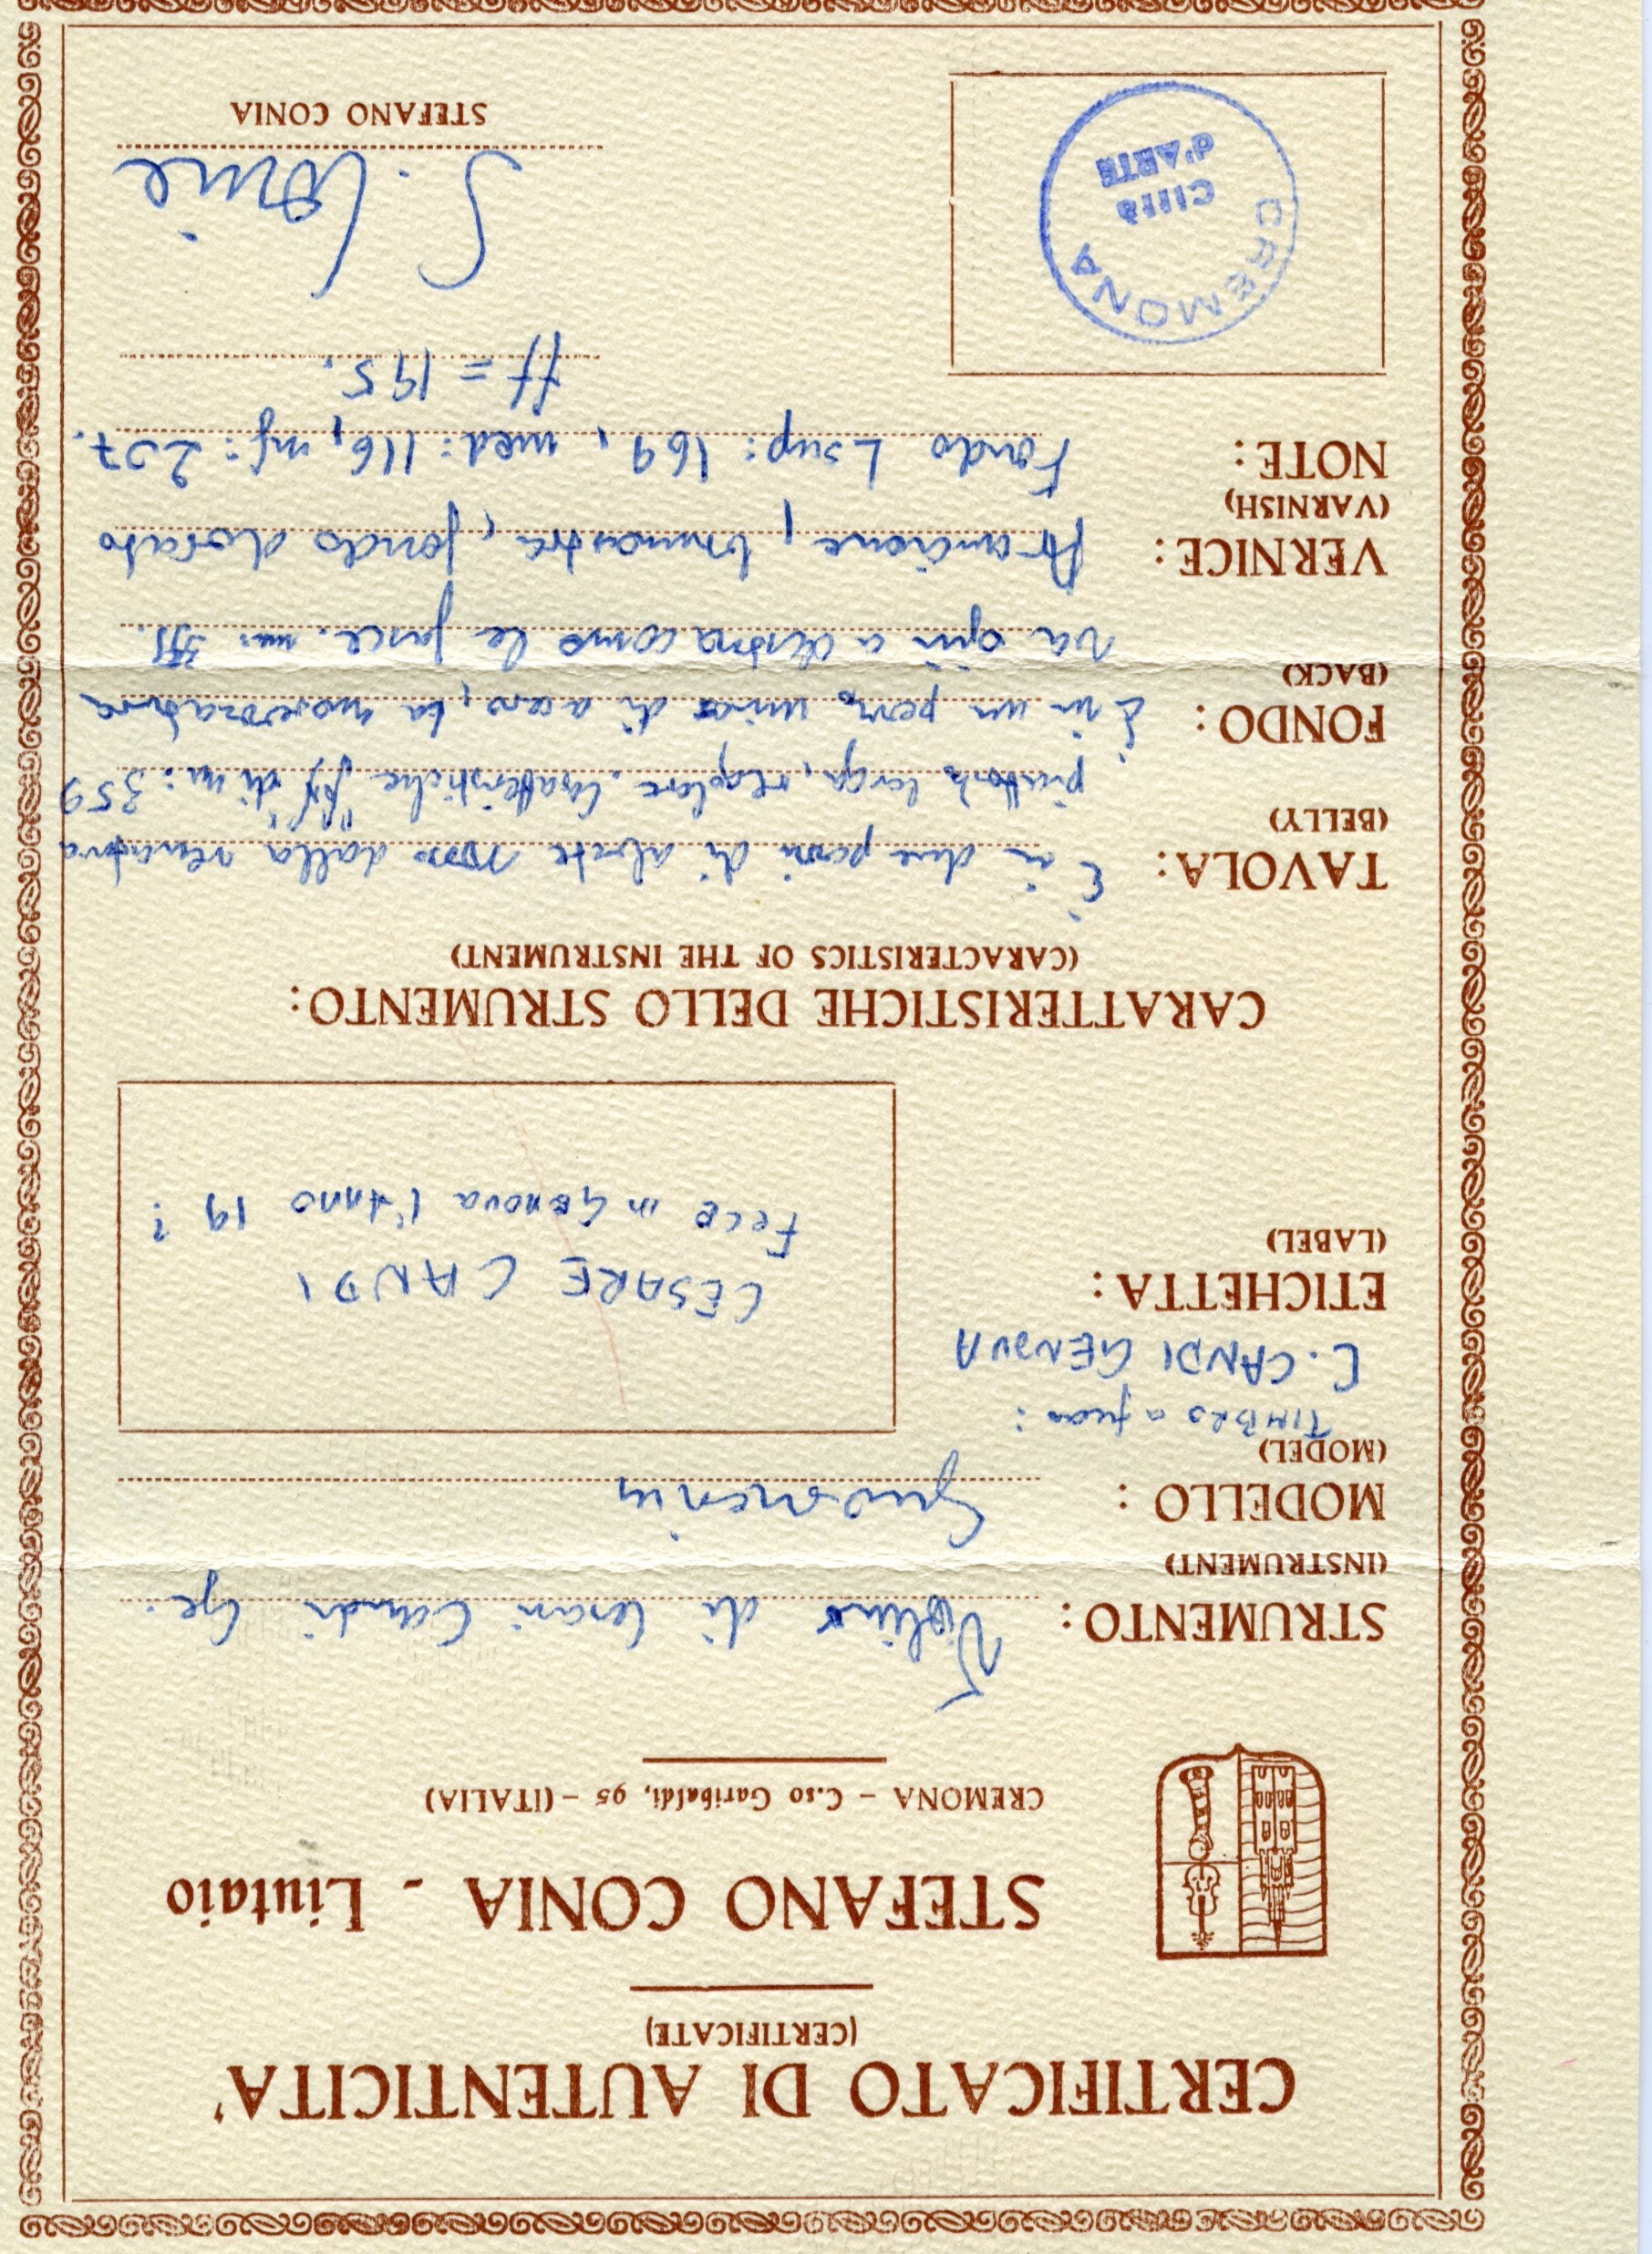 CERTIFICATO DI AUTENTICITA'
(CERTIFICATE)
STEFANO CONIA - Liutaio
CREMONA - C.so Garibaldi, 95 - (ITALIA)
STRUMENTO: Violino di Cesari Candi Ge.
(INSTRUMENT)
MODELLO:
(MODEL)
TIMBRO a fuoco:
C. CANDI GENOVA
ETICHETTA:
(LABEL)
CESARE CANDI
Fece in Genova l'Anno 19 ?
CARATTERISTICHE DELLO STRUMENTO:
(CARACTERISTICS OF THE INSTRUMENT)
TAVOLA: È in due pezzi di abete rosso dalla venatura
(BELLY)
piuttosto larga, regolare. Caratteristiche "ff" di mm: 359
FONDO: È in un pezzo unico di acero, la marezzatura
(BACK)
va giù a destra come le fasce. mm:
VERNICE: Arancione, brunastra, fondo dorato
(VARNISH)
NOTE: Fondo Lsup: 169, med: 116, inf: 207.
ff = 195.
CREMONA
Città
d'ARTE
S. Conia
STEFANO CONIA